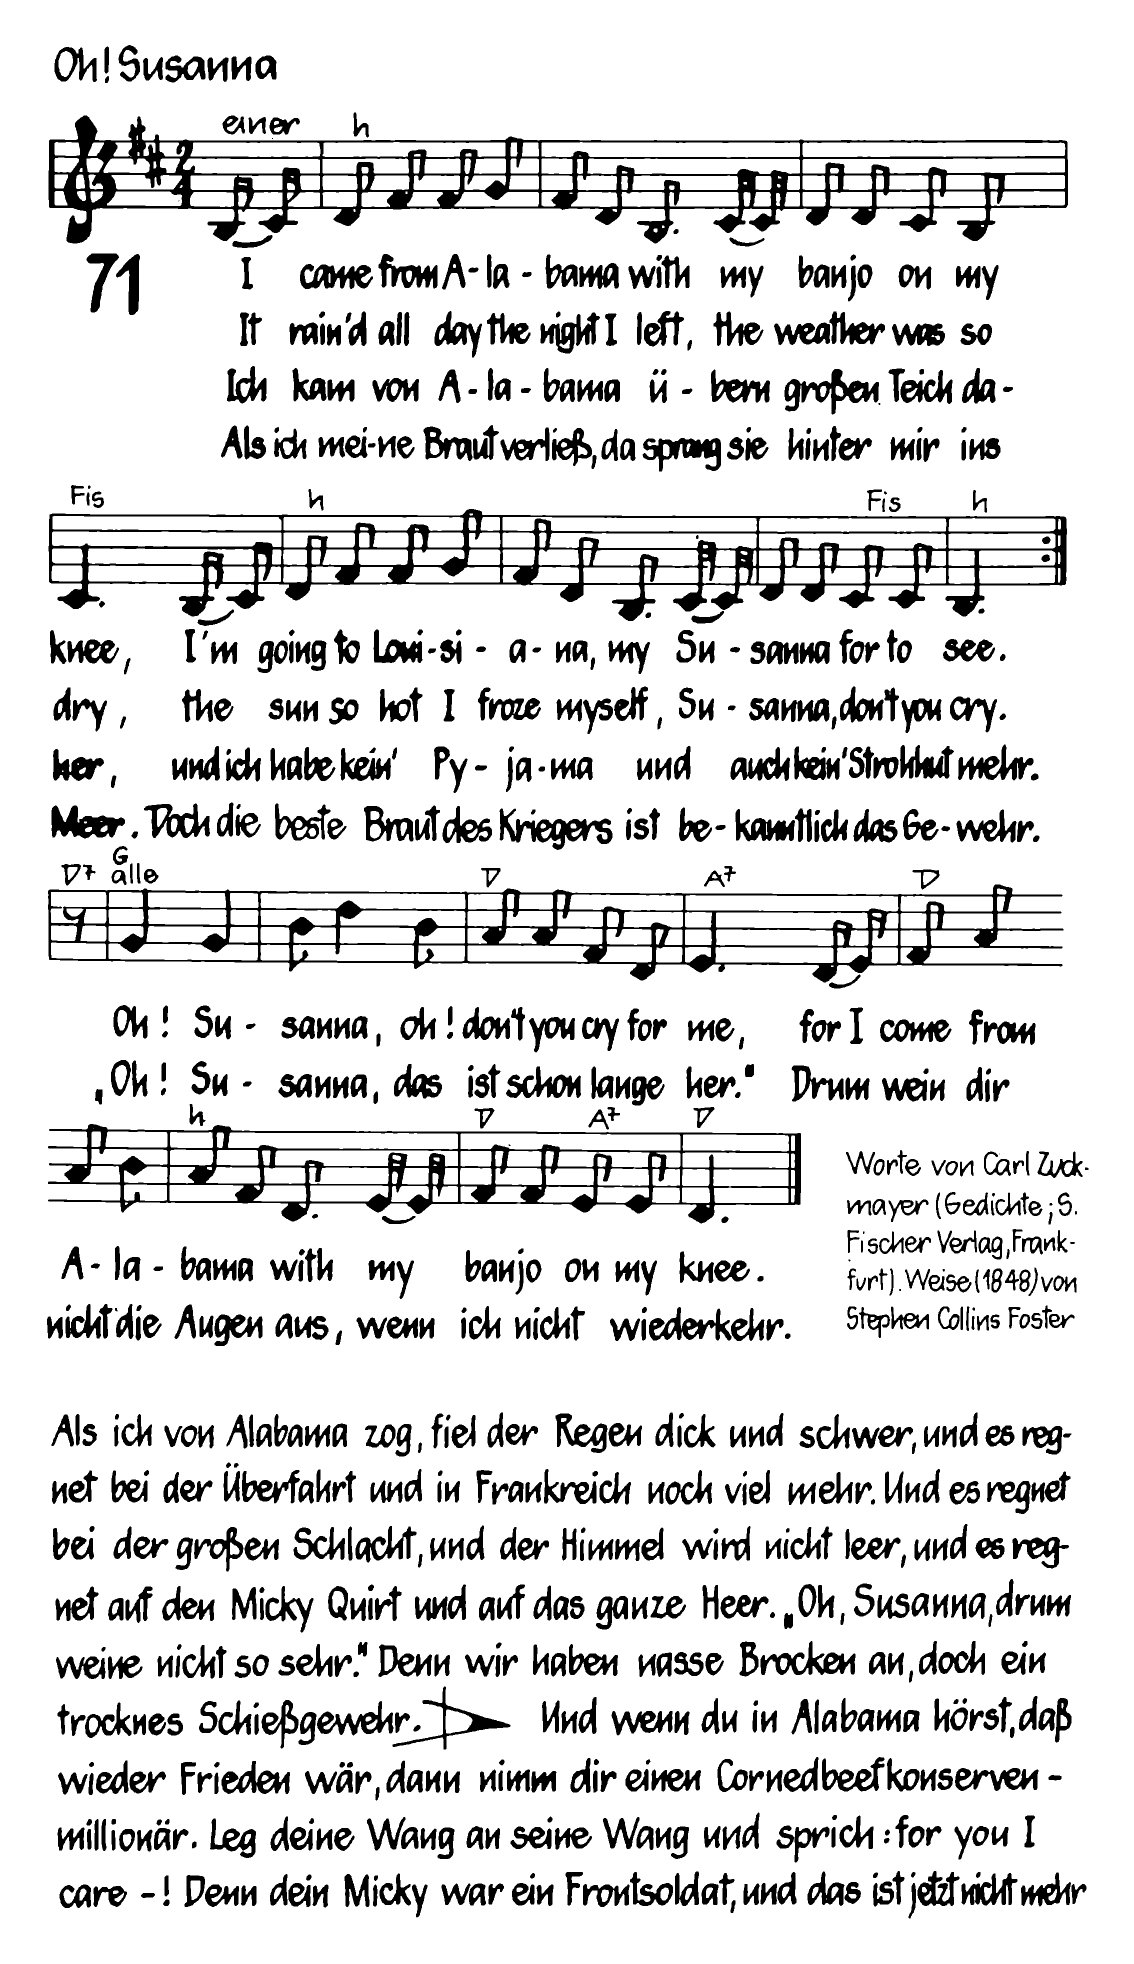 Oh! Susanna
einer h
2
4
71
I came from A-la-bama with my banjo on my
It rain'd all day the night I left, the weather was so
Ich kam von A-la-bama ü-bern großen Teich da-
Als ich mei-ne Braut verließ, da sprang sie hinter mir ins
Fis h Fis h
knee, I'm going to Loui-si-a-na, my Su-sanna for to see.
dry, the sun so hot I froze myself, Su-sanna, don't you cry.
her, und ich habe kein' Py-ja-ma und auch kein' Strohhut mehr.
Meer. Doch die beste Braut des Kriegers ist be-kanntlich das Ge-wehr.
D7 G D A7 D
alle
Oh! Su-sanna, oh! don't you cry for me, for I come from
„Oh! Su-sanna, das ist schon lange her." Drum wein dir
h D A7 D
A-la-bama with my banjo on my knee.
nicht die Augen aus, wenn ich nicht wiederkehr.
Worte von Carl Zuck-
mayer (Gedichte; S.
Fischer Verlag, Frank-
furt). Weise (1848) von
Stephen Collins Foster
Als ich von Alabama zog, fiel der Regen dick und schwer, und es reg-
net bei der Überfahrt und in Frankreich noch viel mehr. Und es regnet
bei der großen Schlacht, und der Himmel wird nicht leer, und es reg-
net auf den Micky Quirt und auf das ganze Heer. „Oh, Susanna, drum
weine nicht so sehr." Denn wir haben nasse Brocken an, doch ein
trocknes Schießgewehr. Und wenn du in Alabama hörst, daß
wieder Frieden wär, dann nimm dir einen Cornedbeefkonserven-
millionär. Leg deine Wang an seine Wang und sprich: for you I
care -! Denn dein Micky war ein Frontsoldat, und das ist jetzt nicht mehr